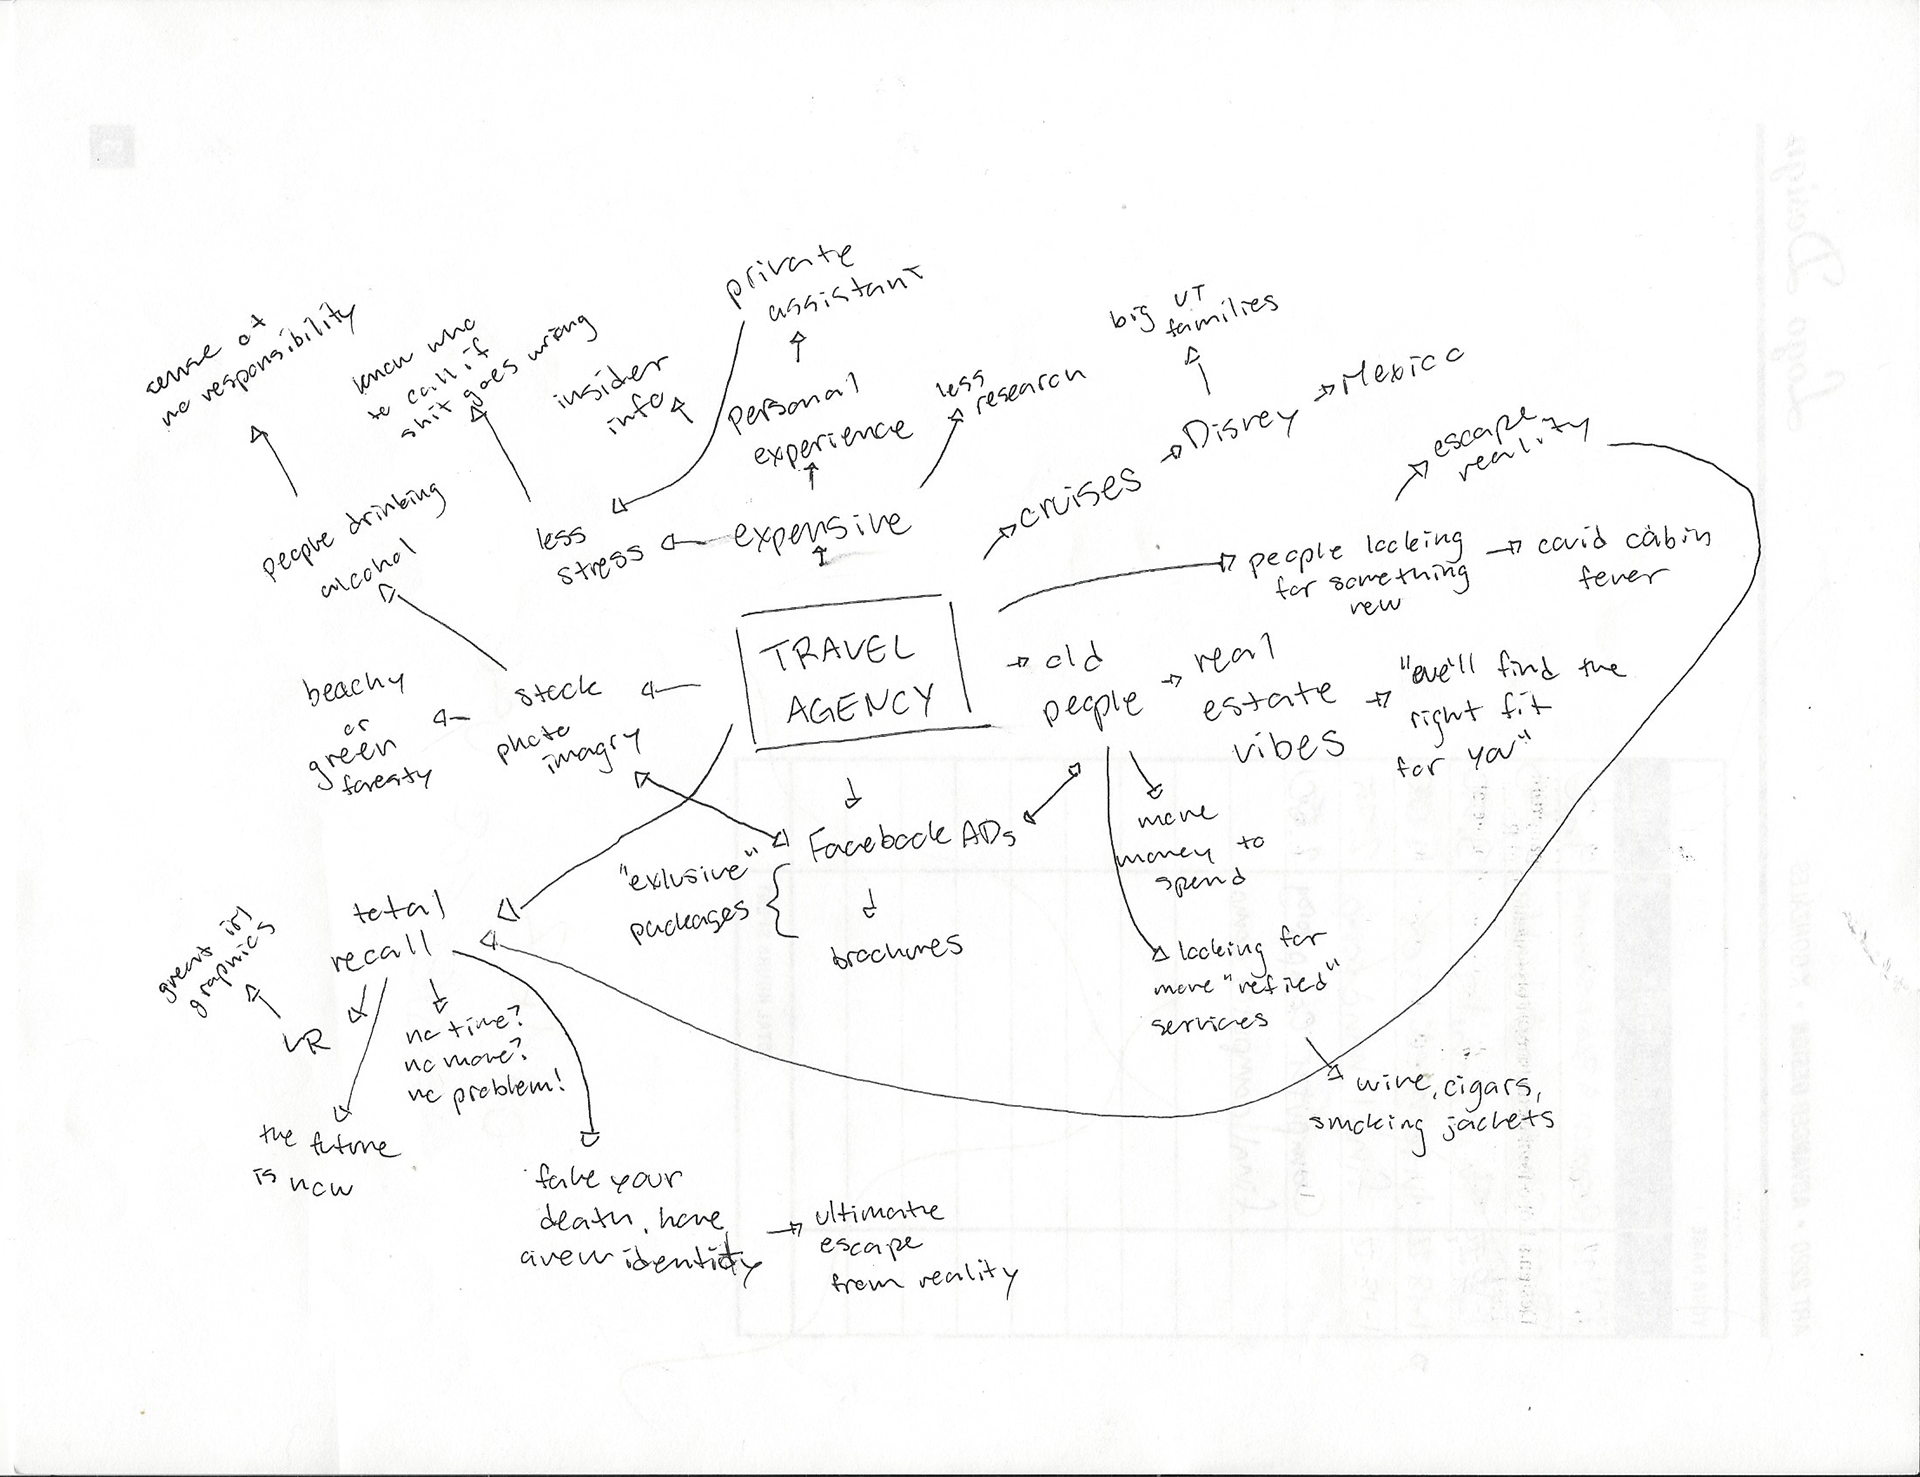 private
assistant
big UT
families
sense of
no responsibility
know who
to call if
shit goes wrong
insider
info
personal
experience
less
research
Disney
Mexico
escape
reality
cruises
people drinking
alcohol
less
stress
expensive
people looking
for something
new
covid cabin
fever
TRAVEL
AGENCY
old
people
real
estate
vibes
"we'll find the
right fit
for you"
beachy
or
green
foresty
stock
photo
imagry
more
money to
spend
Facebook ADs
"exlusive"
packages
brochures
total
recall
graphics
VR
no time?
no problem!
the future
is now
looking for
more "refined"
services
wine, cigars,
smoking jackets
fake your
death, have
a new identity
ultimate
escape
from reality
Logo Design